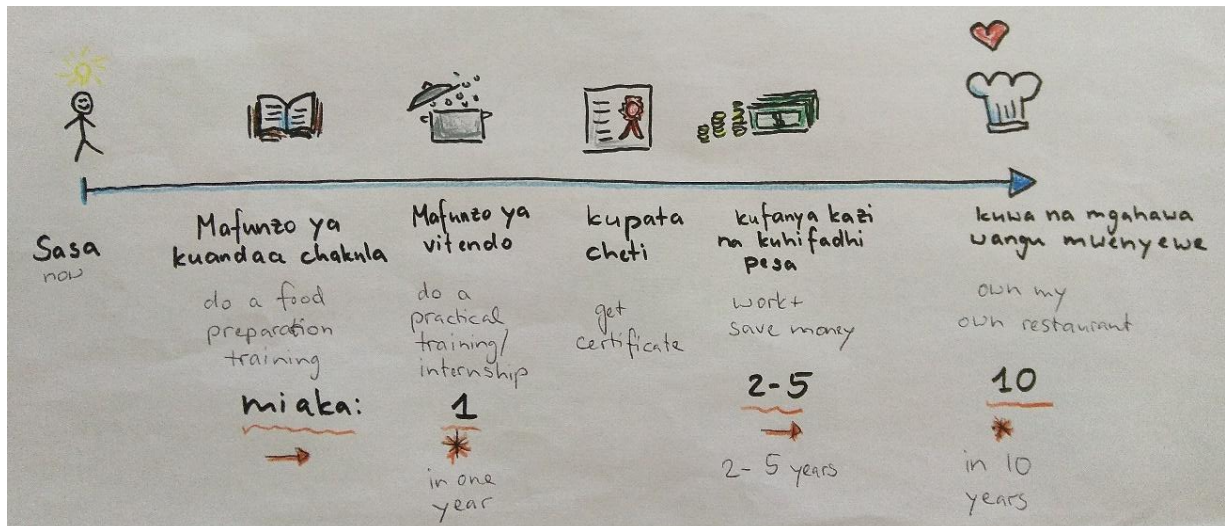 Sasa
now
Mafunzo ya
kuandaa chakula
do a food
preparation
training
miaka:
Mafunzo ya
vitendo
do a
practical
training/
internship
1
in one
year
kupata
cheti
get
certificate
kufanya kazi
na kuhifadhi
pesa
work+
save money
2-5
2-5 years
kuwa na mgahawa
wangu mwenyewe
own my
own restaurant
10
in 10
years